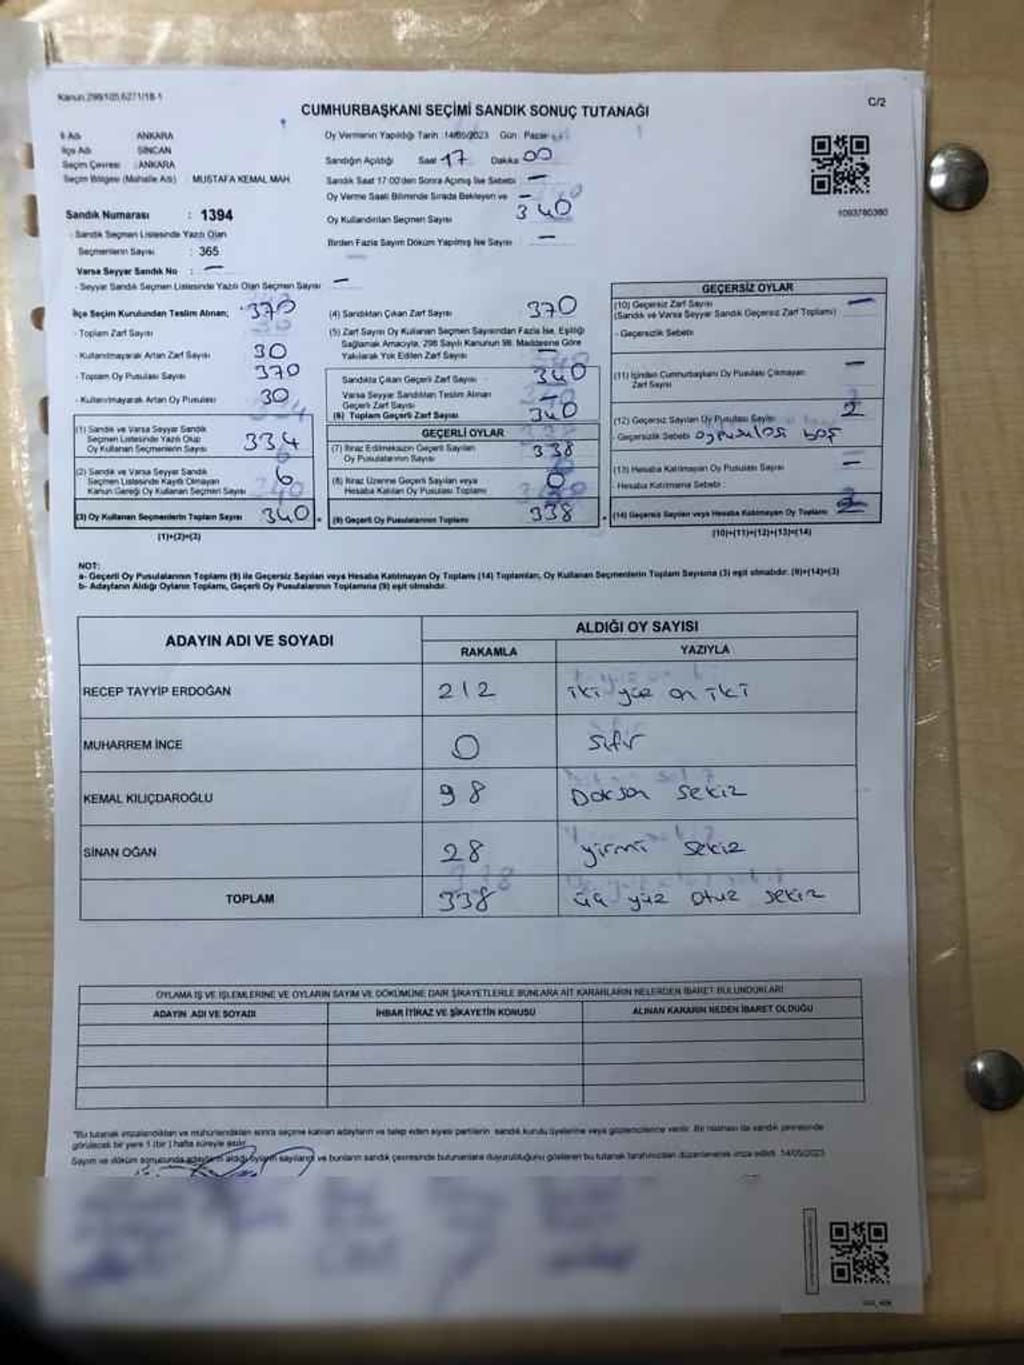 Kanun:298/105,6271/18-1
C/2
CUMHURBAŞKANI SEÇİMİ SANDIK SONUÇ TUTANAĞI
İl Adı ANKARA
İlçe Adı SİNCAN
Seçim Çevresi : ANKARA
Seçim Bölgesi (Mahalle Adı) MUSTAFA KEMAL MAH.
Sandık Numarası : 1394
- Sandık Seçmen Listesinde Yazılı Olan
Seçmenlerin Sayısı : 365
Varsa Seyyar Sandık No : —
- Seyyar Sandık Seçmen Listesinde Yazılı Olan Seçmen Sayısı —
Oy Vermenin Yapıldığı Tarih :14/05/2023 Gün : Pazar
Sandığın Açıldığı Saat 17 Dakika 00
Sandık Saat 17:00'den Sonra Açılmış İse Sebebi —
Oy Verme Saati Bitiminde Sırada Bekleyen ve —
Oy Kullandırılan Seçmen Sayısı 340
Birden Fazla Sayım Döküm Yapılmış İse Sayısı —
1093780380
İlçe Seçim Kurulundan Teslim Alınan; 370
- Toplam Zarf Sayısı
- Kullanılmayarak Artan Zarf Sayısı 30
- Toplam Oy Pusulası Sayısı 370
- Kullanılmayarak Artan Oy Pusulası 30
(1) Sandık ve Varsa Seyyar Sandık
Seçmen Listesinde Yazılı Olup
Oy Kullanan Seçmenlerin Sayısı 334
(2) Sandık ve Varsa Seyyar Sandık
Seçmen Listesinde Kayıtlı Olmayan
Kanun Gereği Oy Kullanan Seçmen Sayısı 6
(3) Oy Kullanan Seçmenlerin Toplam Sayısı 340
(1)+(2)=(3)
(4) Sandıktan Çıkan Zarf Sayısı 370
(5) Zarf Sayısı Oy Kullanan Seçmen Sayısından Fazla İse, Eşitliği
Sağlamak Amacıyla, 298 Sayılı Kanunun 98. Maddesine Göre
Yakılarak Yok Edilen Zarf Sayısı —
Sandıkta Çıkan Geçerli Zarf Sayısı 340
Varsa Seyyar Sandıktan Teslim Alınan
Geçerli Zarf Sayısı —
(6) Toplam Geçerli Zarf Sayısı 340
GEÇERLİ OYLAR
(7) İtiraz Edilmeksizin Geçerli Sayılan
Oy Pusulalarının Sayısı 338
(8) İtiraz Üzerine Geçerli Sayılan veya
Hesaba Katılan Oy Pusulası Toplamı 0
(9) Geçerli Oy Pusulalarının Toplamı 338
GEÇERSİZ OYLAR
(10) Geçersiz Zarf Sayısı —
(Sandık ve Varsa Seyyar Sandık Geçersiz Zarf Toplamı)
- Geçersizlik Sebebi
(11) İçinden Cumhurbaşkanı Oy Pusulası Çıkmayan —
Zarf Sayısı
(12) Geçersiz Sayılan Oy Pusulası Sayısı 2
- Geçersizlik Sebebi oy pusulası boş
(13) Hesaba Katılmayan Oy Pusulası Sayısı —
- Hesaba Katılmama Sebebi :
(14) Geçersiz Sayılan veya Hesaba Katılmayan Oy Toplamı 2
(10)+(11)+(12)+(13)=(14)
NOT:
a- Geçerli Oy Pusulalarının Toplamı (9) ile Geçersiz Sayılan veya Hesaba Katılmayan Oy Toplamı (14) Toplamları, Oy Kullanan Seçmenlerin Toplam Sayısına (3) eşit olmalıdır. (9)+(14)=(3)
b- Adayların Aldığı Oyların Toplamı, Geçerli Oy Pusulalarının Toplamına (9) eşit olmalıdır.
ADAYIN ADI VE SOYADI ALDIĞI OY SAYISI
RAKAMLA YAZIYLA
RECEP TAYYİP ERDOĞAN 212 iki yüz on iki
MUHARREM İNCE 0 sıfır
KEMAL KILIÇDAROĞLU 98 Doksan sekiz
SİNAN OĞAN 28 yirmi sekiz
TOPLAM 338 üç yüz otuz sekiz
OYLAMA İŞ VE İŞLEMLERİNE VE OYLARIN SAYIM VE DÖKÜMÜNE DAİR ŞİKAYETLERLE BUNLARA AİT KARARLARIN NELERDEN İBARET BULUNDUKLARI
ADAYIN ADI VE SOYADI İHBAR İTİRAZ VE ŞİKAYETİN KONUSU ALINAN KARARIN NEDEN İBARET OLDUĞU
"Bu tutanak imzalandıktan ve mühürlendikten sonra seçime katılan adayların ve talep eden siyasi partilerin sandık kurulu üyelerine veya gözlemcilerine verilir. Bir nüshası da sandık çevresinde
görülecek bir yere 1 (bir ) hafta süreyle asılır.
Sayım ve döküm sonucunda adayların aldığı oyların sayılarını ve bunların sandık çevresinde bulunanlara duyurulduğunu gösteren bu tutanak tarafımızdan düzenlenerek imza edildi. 14/05/2023